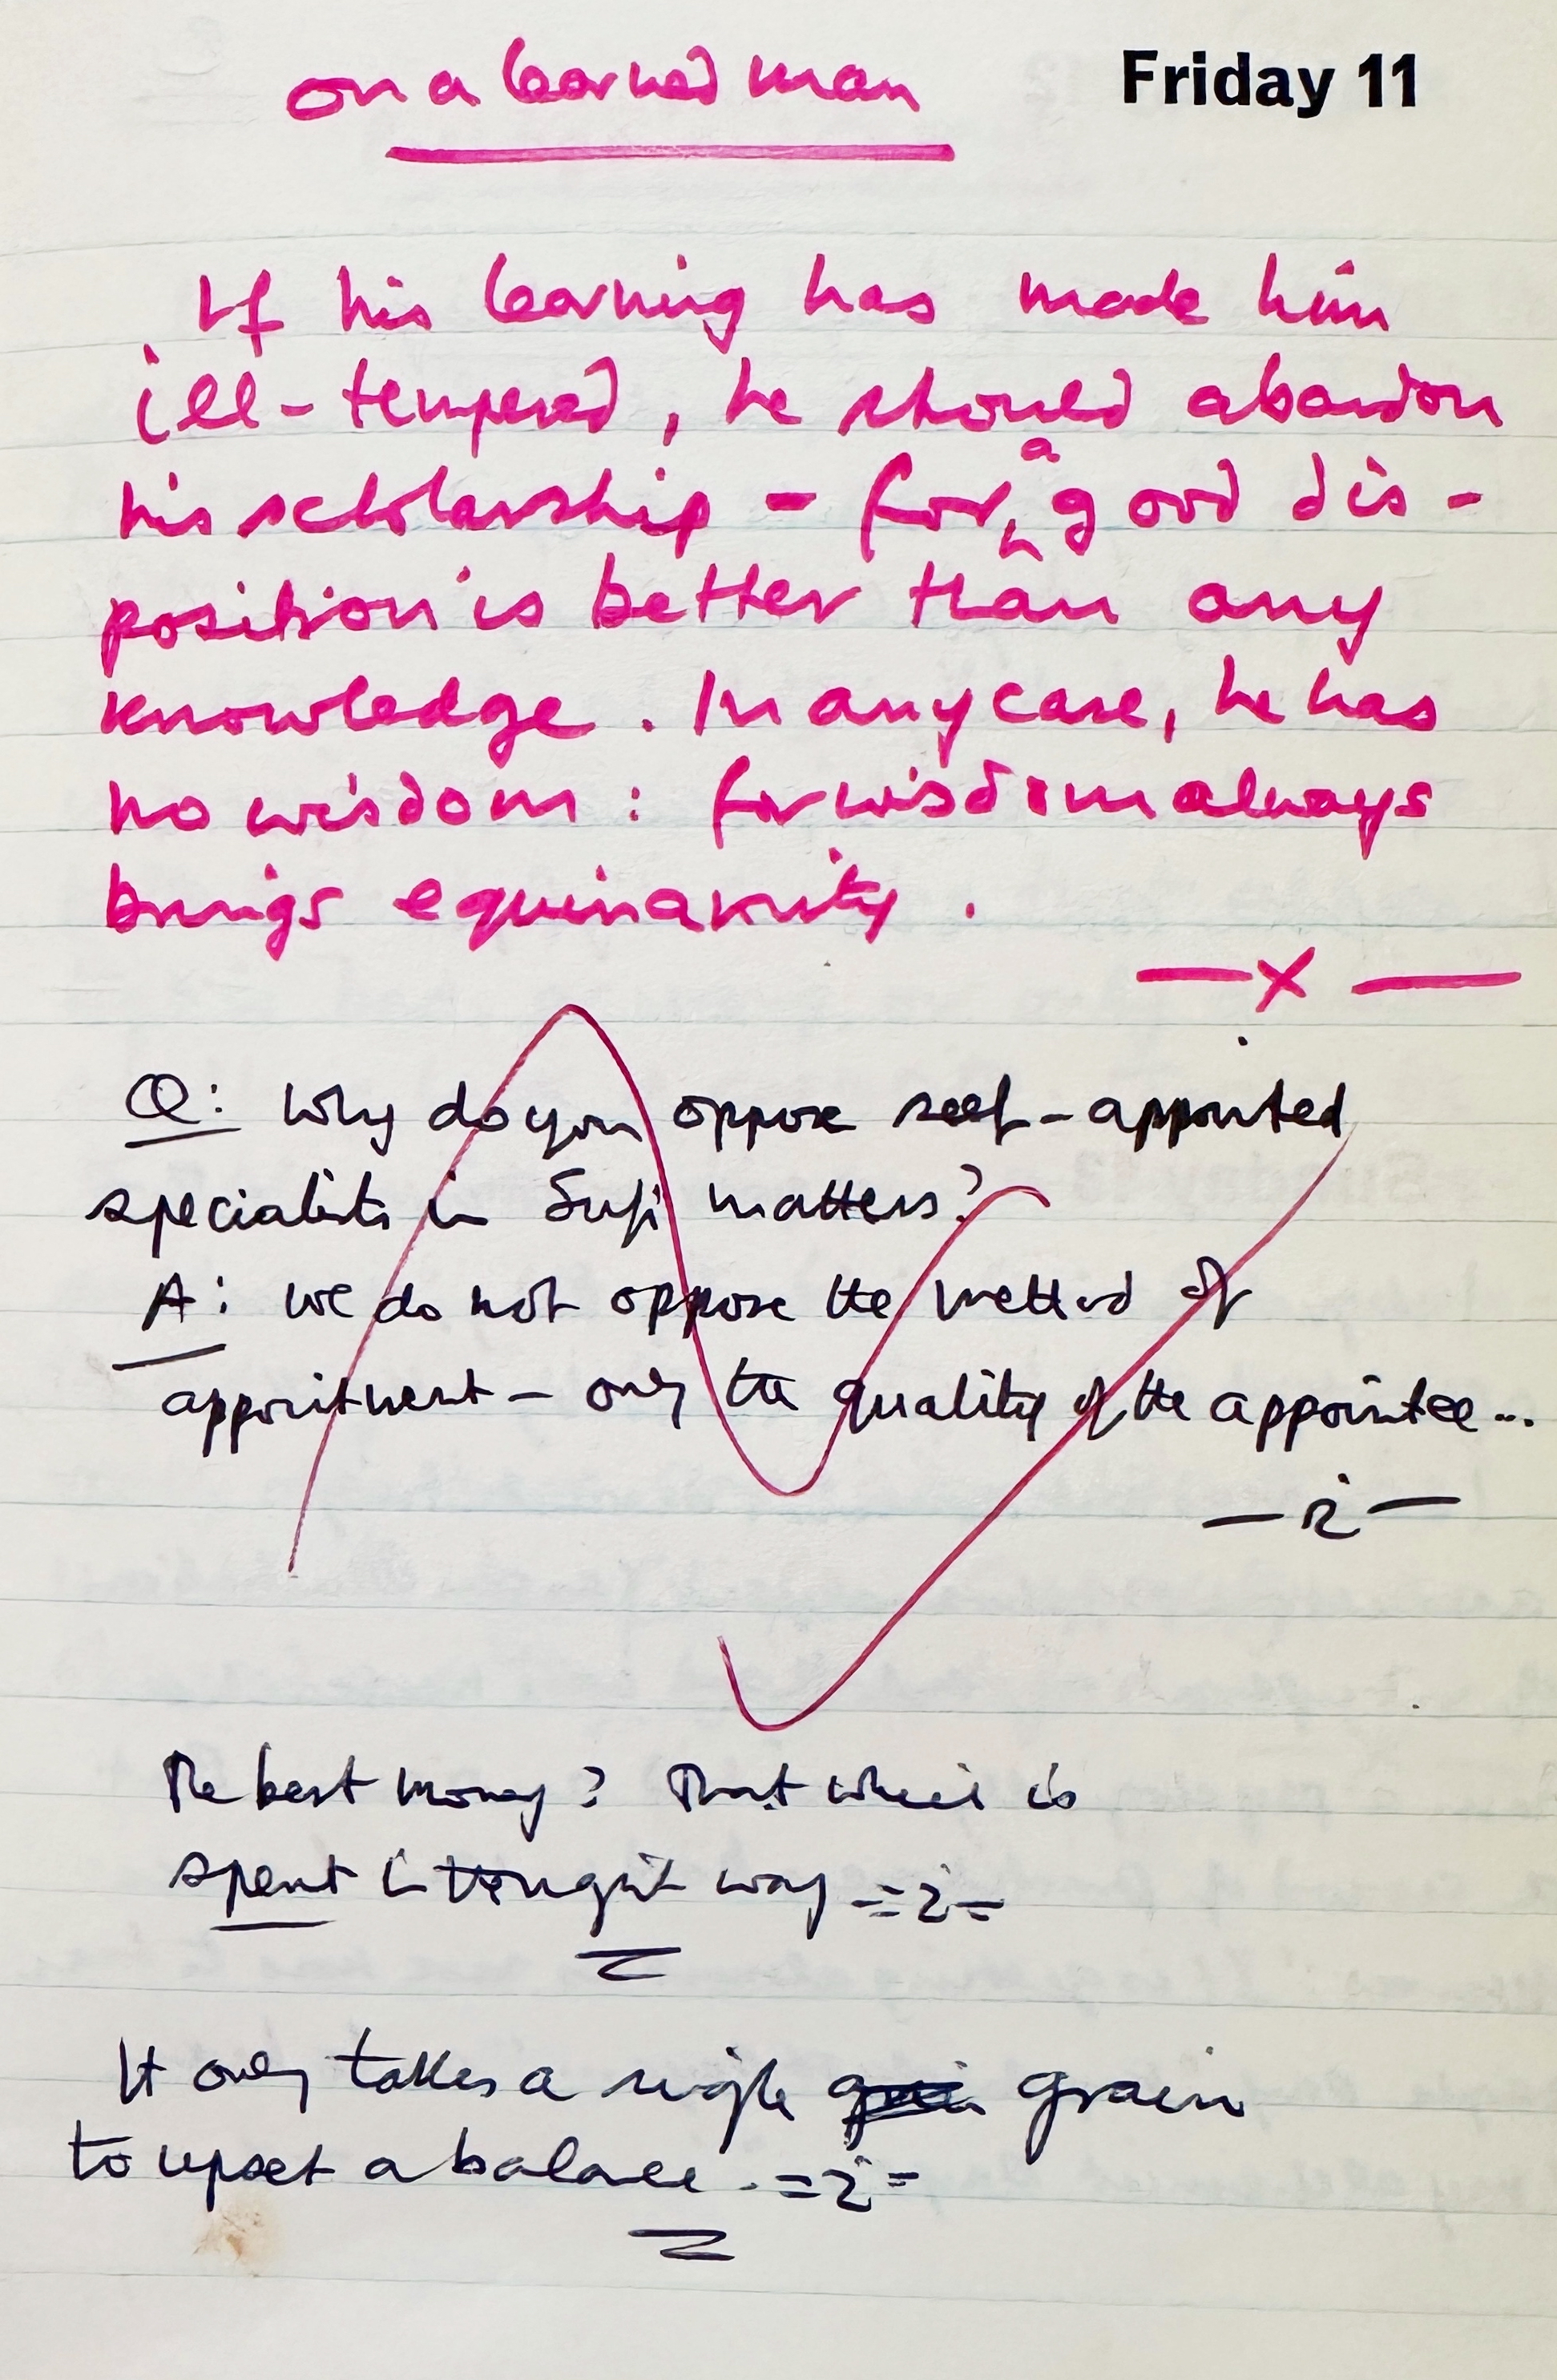 on a learned man
Friday 11
If his learning has made him
ill-tempered, he should abandon
his scholarship - for a good dis-
position is better than any
knowledge. In any case, he has
no wisdom: for wisdom always
brings equinamity.
— X —
Q: Why do you oppose self-appointed
specialists in Sufi matters?
A: We do not oppose the method of
appointment — only the quality of the appointee...
The best money? That which is
spent in the right way
It only takes a single grain
to upset a balance.